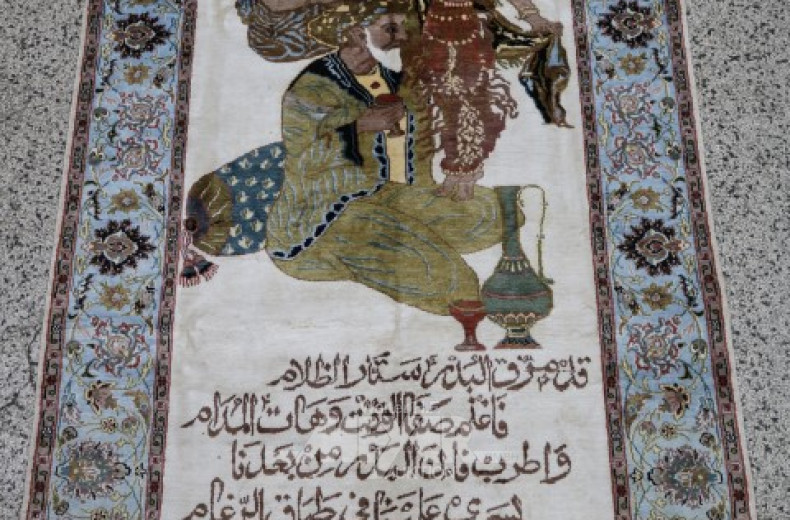 قد مزق البدر ستار الظلام
فاغنم صفا الوقت وهات المدام
واطرب فإن البدر من بعدنا
يسري علينا في طباق الرغام